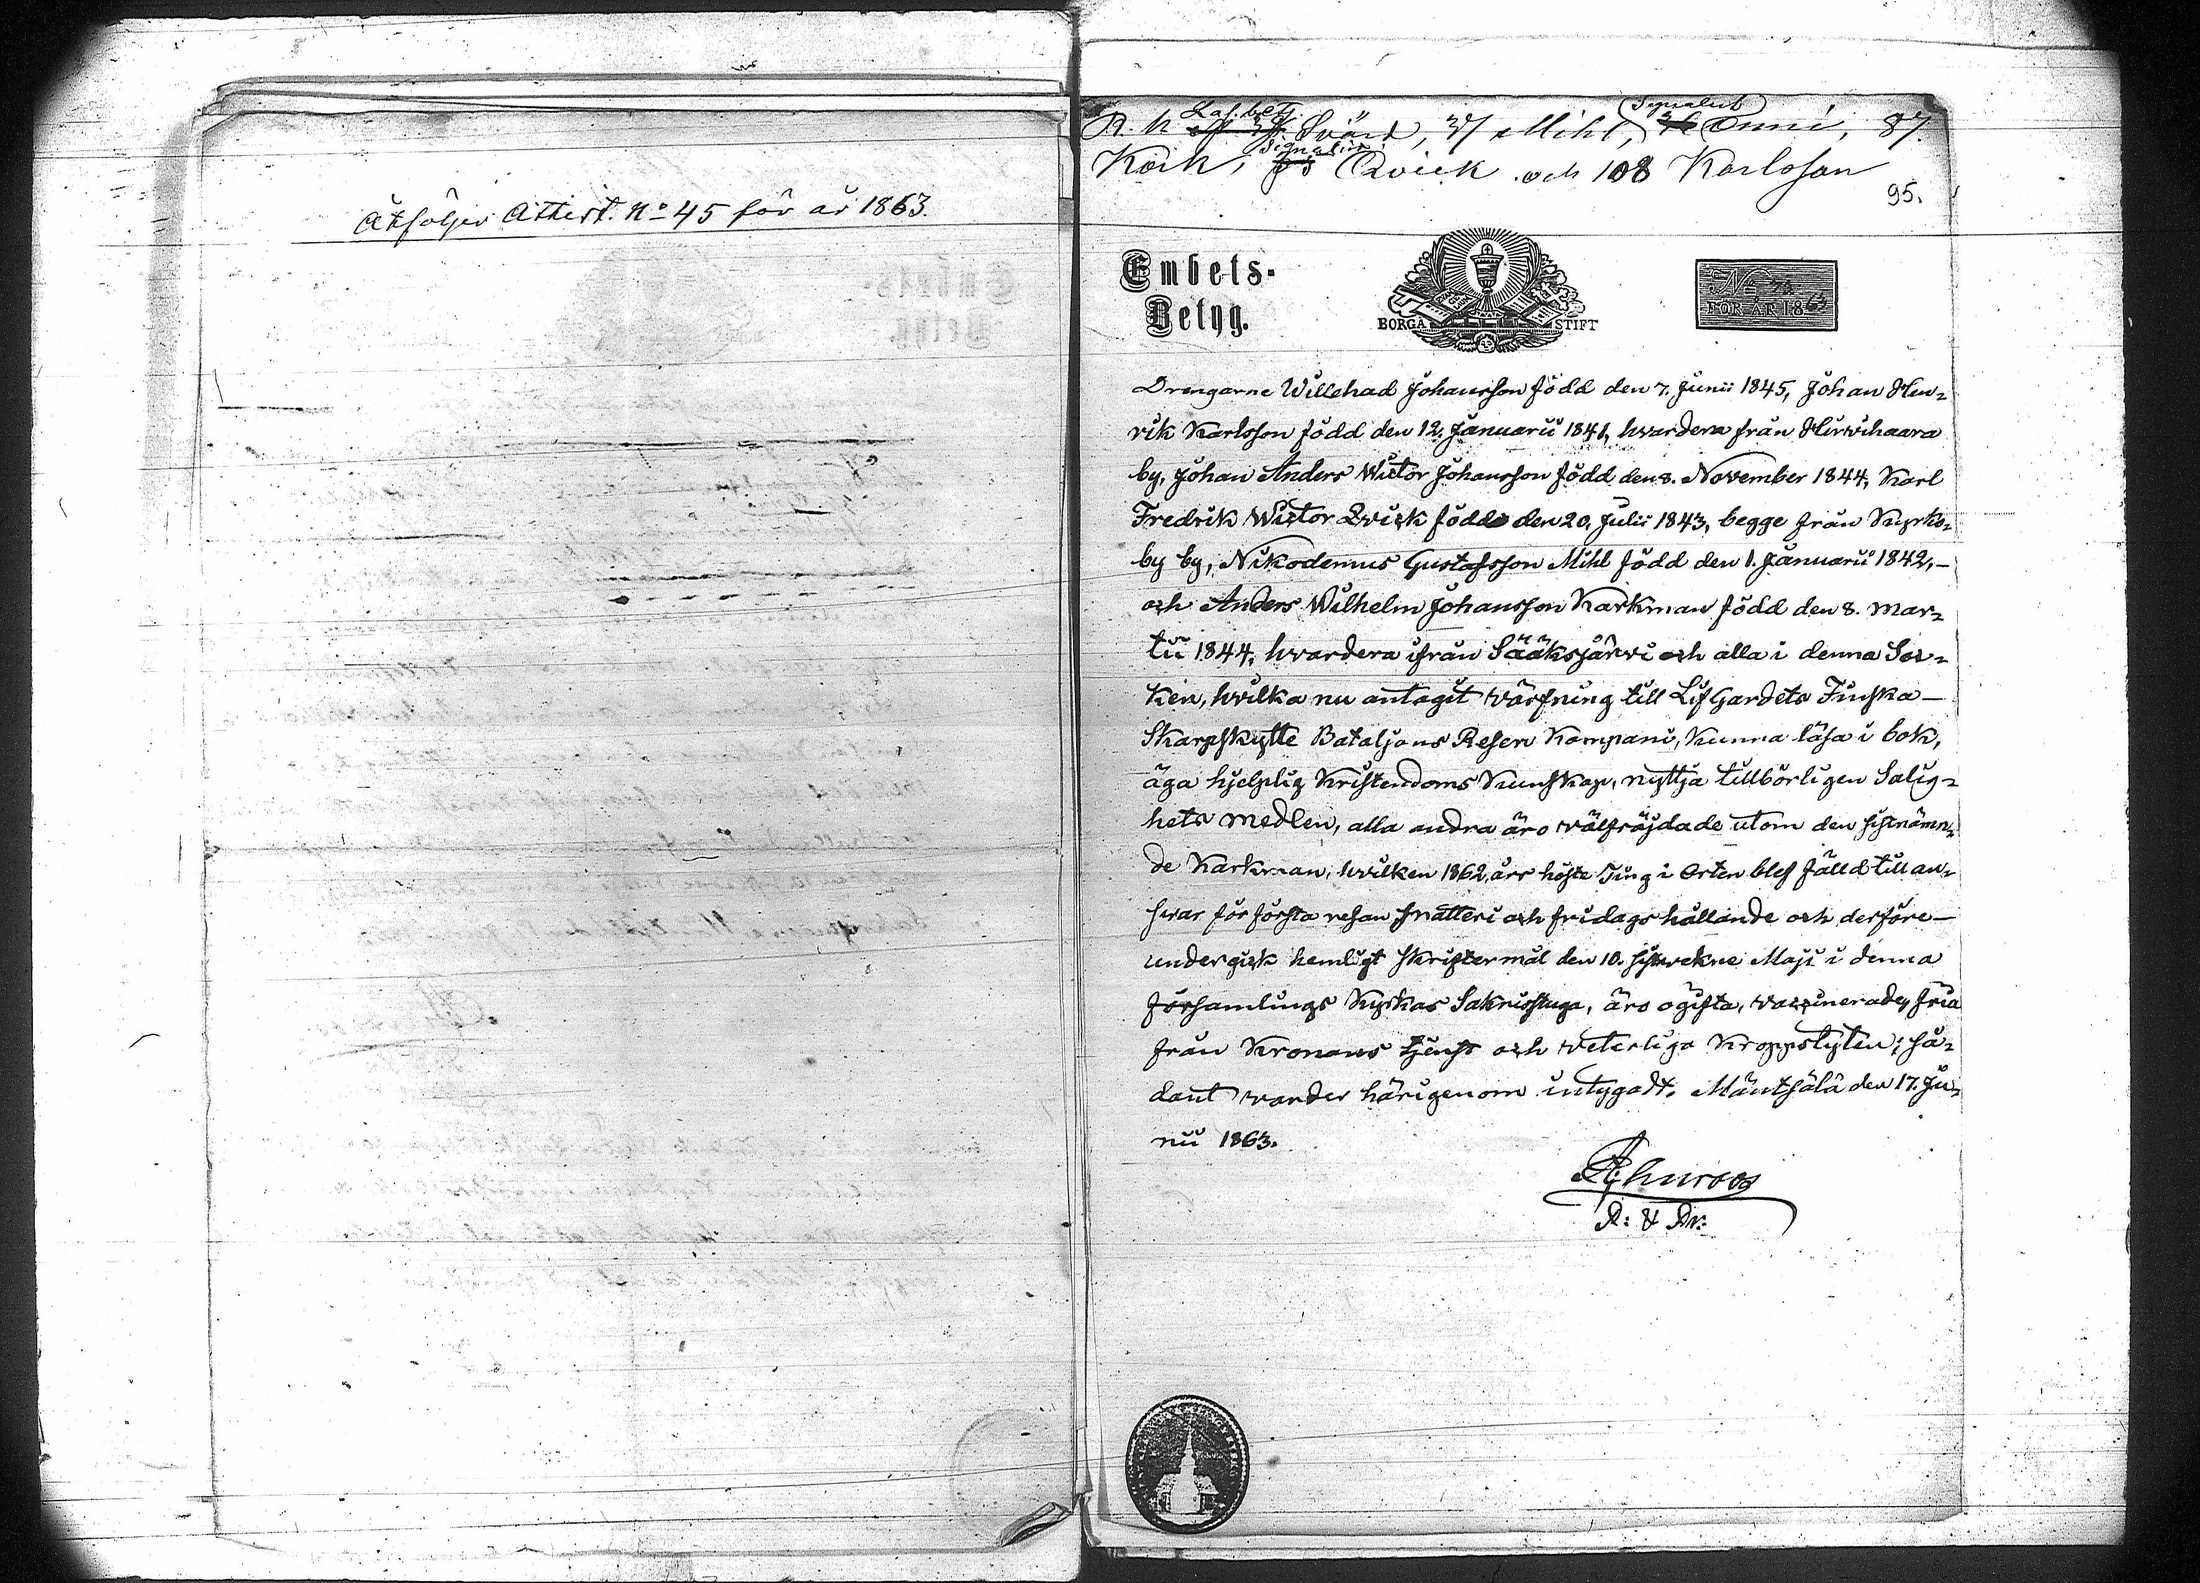 Åtföljer Attest. No 45 för år 1863.
R. k Svärd, 37 Mihl, Signalist Onni, 87.
Koik, Signalist Qvick och 108 Karlsson
95.
Embets-
Betyg.
BORGÅ STIFT
No 73
FÖR ÅR 1863
Drengarne Willehad Johansson född den 7. Junii 1845, Johan Hen-
rik Karlsson född den 12. Januarii 1841, hvardera från Hirvihaara
by, Johan Anders Wictor Johansson född den 8. November 1844, Karl
Fredrik Wictor Qvick född den 20. Julii 1843, begge från Kyrko-
by by, Nikodemus Gustafsson Mihl född den 1. Januarii 1842,
och Anders Wilhelm Johansson Karkman född den 8. Mar-
tii 1844, hvardera ifrån Sääksjärvi och alla i denna Soc-
ken, hvilka nu antagit värfning till Lif Gardets Finska
Skarpskytte Bataljons Reserv Kompani, kunna läsa i bok,
äga hjelplig Kristendoms Kunskap, nyttja tillbörligen Salig-
hets medlen, alla andra äro välfräjdade utom den sistnämn-
de Karkman, hvilken 1862 års höste Ting i Orten blef fälld till an-
svar för första resan snatteri och fridags hållande och derföre
undergick hemligt Skriftermål den 10. sistvekne Maji i denna
församlings Kyrkas Sakristuga, äro ogifta, vaccinerade, fria
från Kronans tjenst och veterliga Kroppslyten; så-
dant varder härigenom intygadt. Mäntsälä den 17. Ju-
nii 1863.